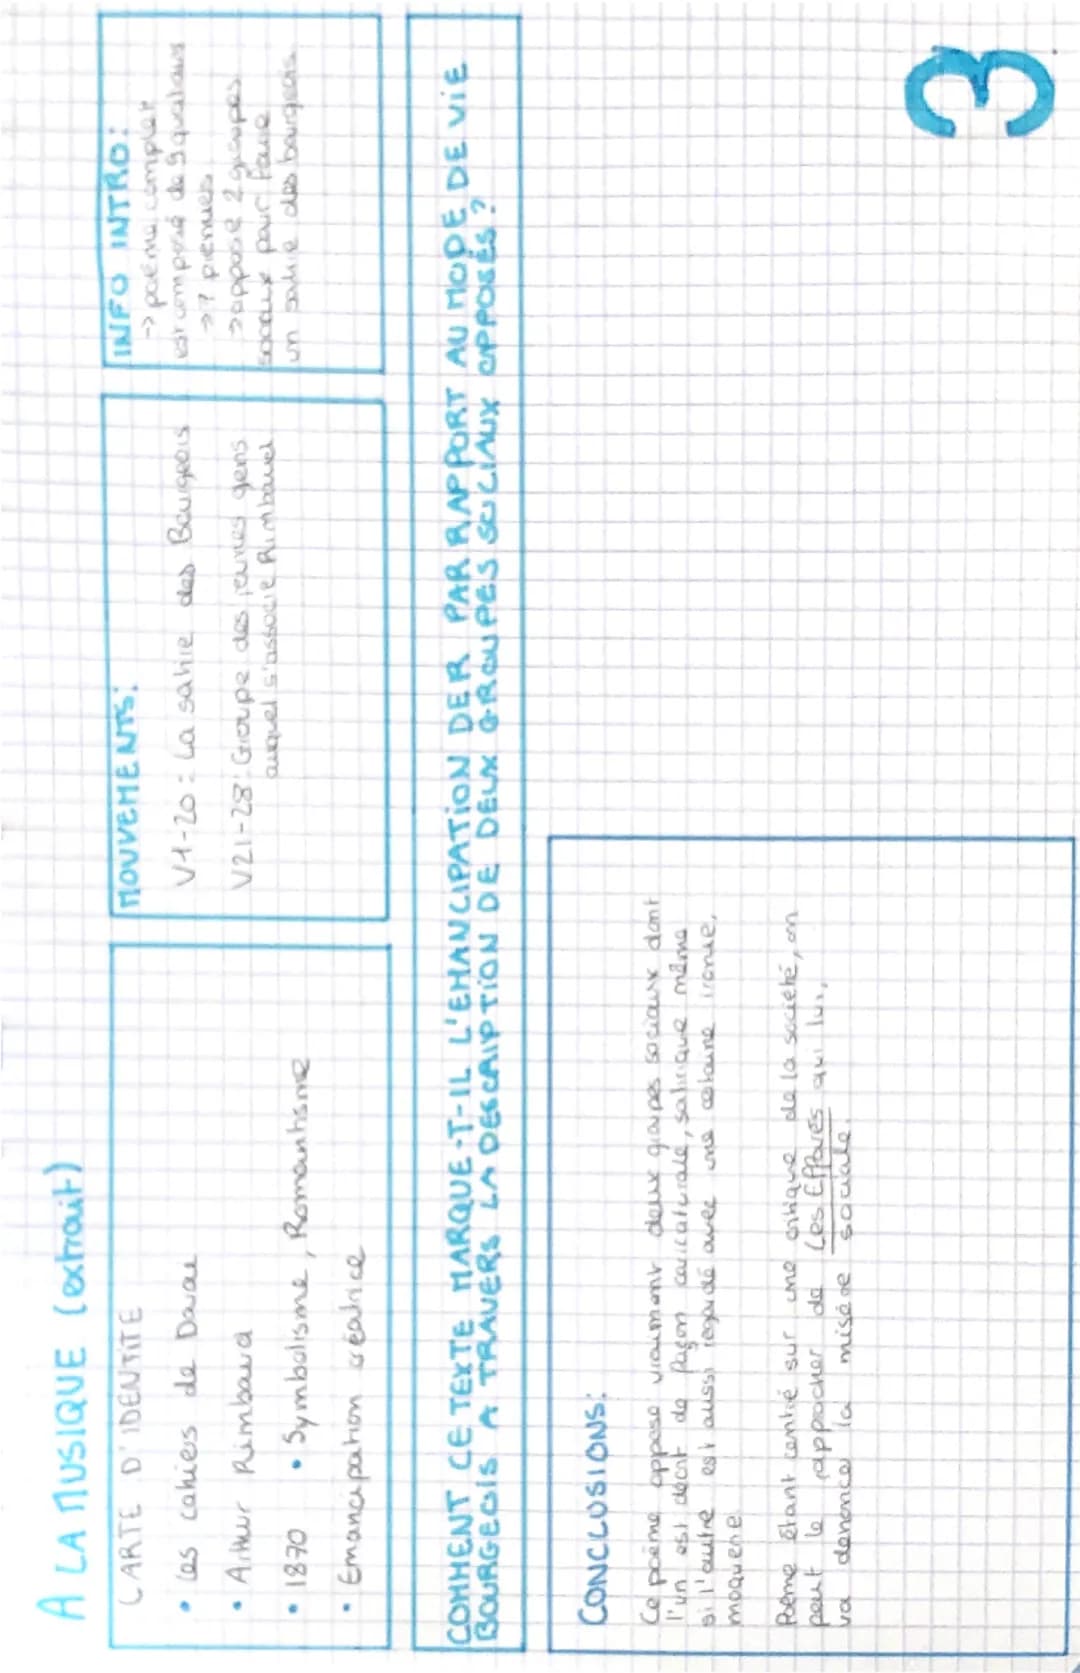 A LA MUSIQUE (extrait)
CARTE D'IDENTITÉ
• Les cahiers de Douai
• Arthur Rimbaud
• 1870 • Symbolisme, Romantisme
• Emancipation créatrice
MOUVEMENTS:
V1-20 : La satire des Bourgeois
V21-28 : Groupe des jeunes gens
auquel s'associe Rimbaud
INFO INTRO:
-> poème complet
est composé de 9 quatrains
-> 7 premiers
-> oppose 2 groupes
sociaux pour faire
un satire des bourgeois
COMMENT CE TEXTE MARQUE-T-IL L'EMANCIPATION DER PAR RAPPORT AU MODE DE VIE
BOURGEOIS A TRAVERS LA DESCRIPTION DE DEUX GROUPES SOCIAUX OPPOSÉS ?
CONCLUSIONS:
Ce poème oppose vraiment deux groupes sociaux dont
l'un est décrit de façon caricaturale, satirique même
si l'autre est aussi regardé avec une certaine ironie,
moquerie
Poème étant centré sur une critique de la société, on
peut le rapprocher de Les Effarés qui lui,
va dénoncer la misère sociale.
3